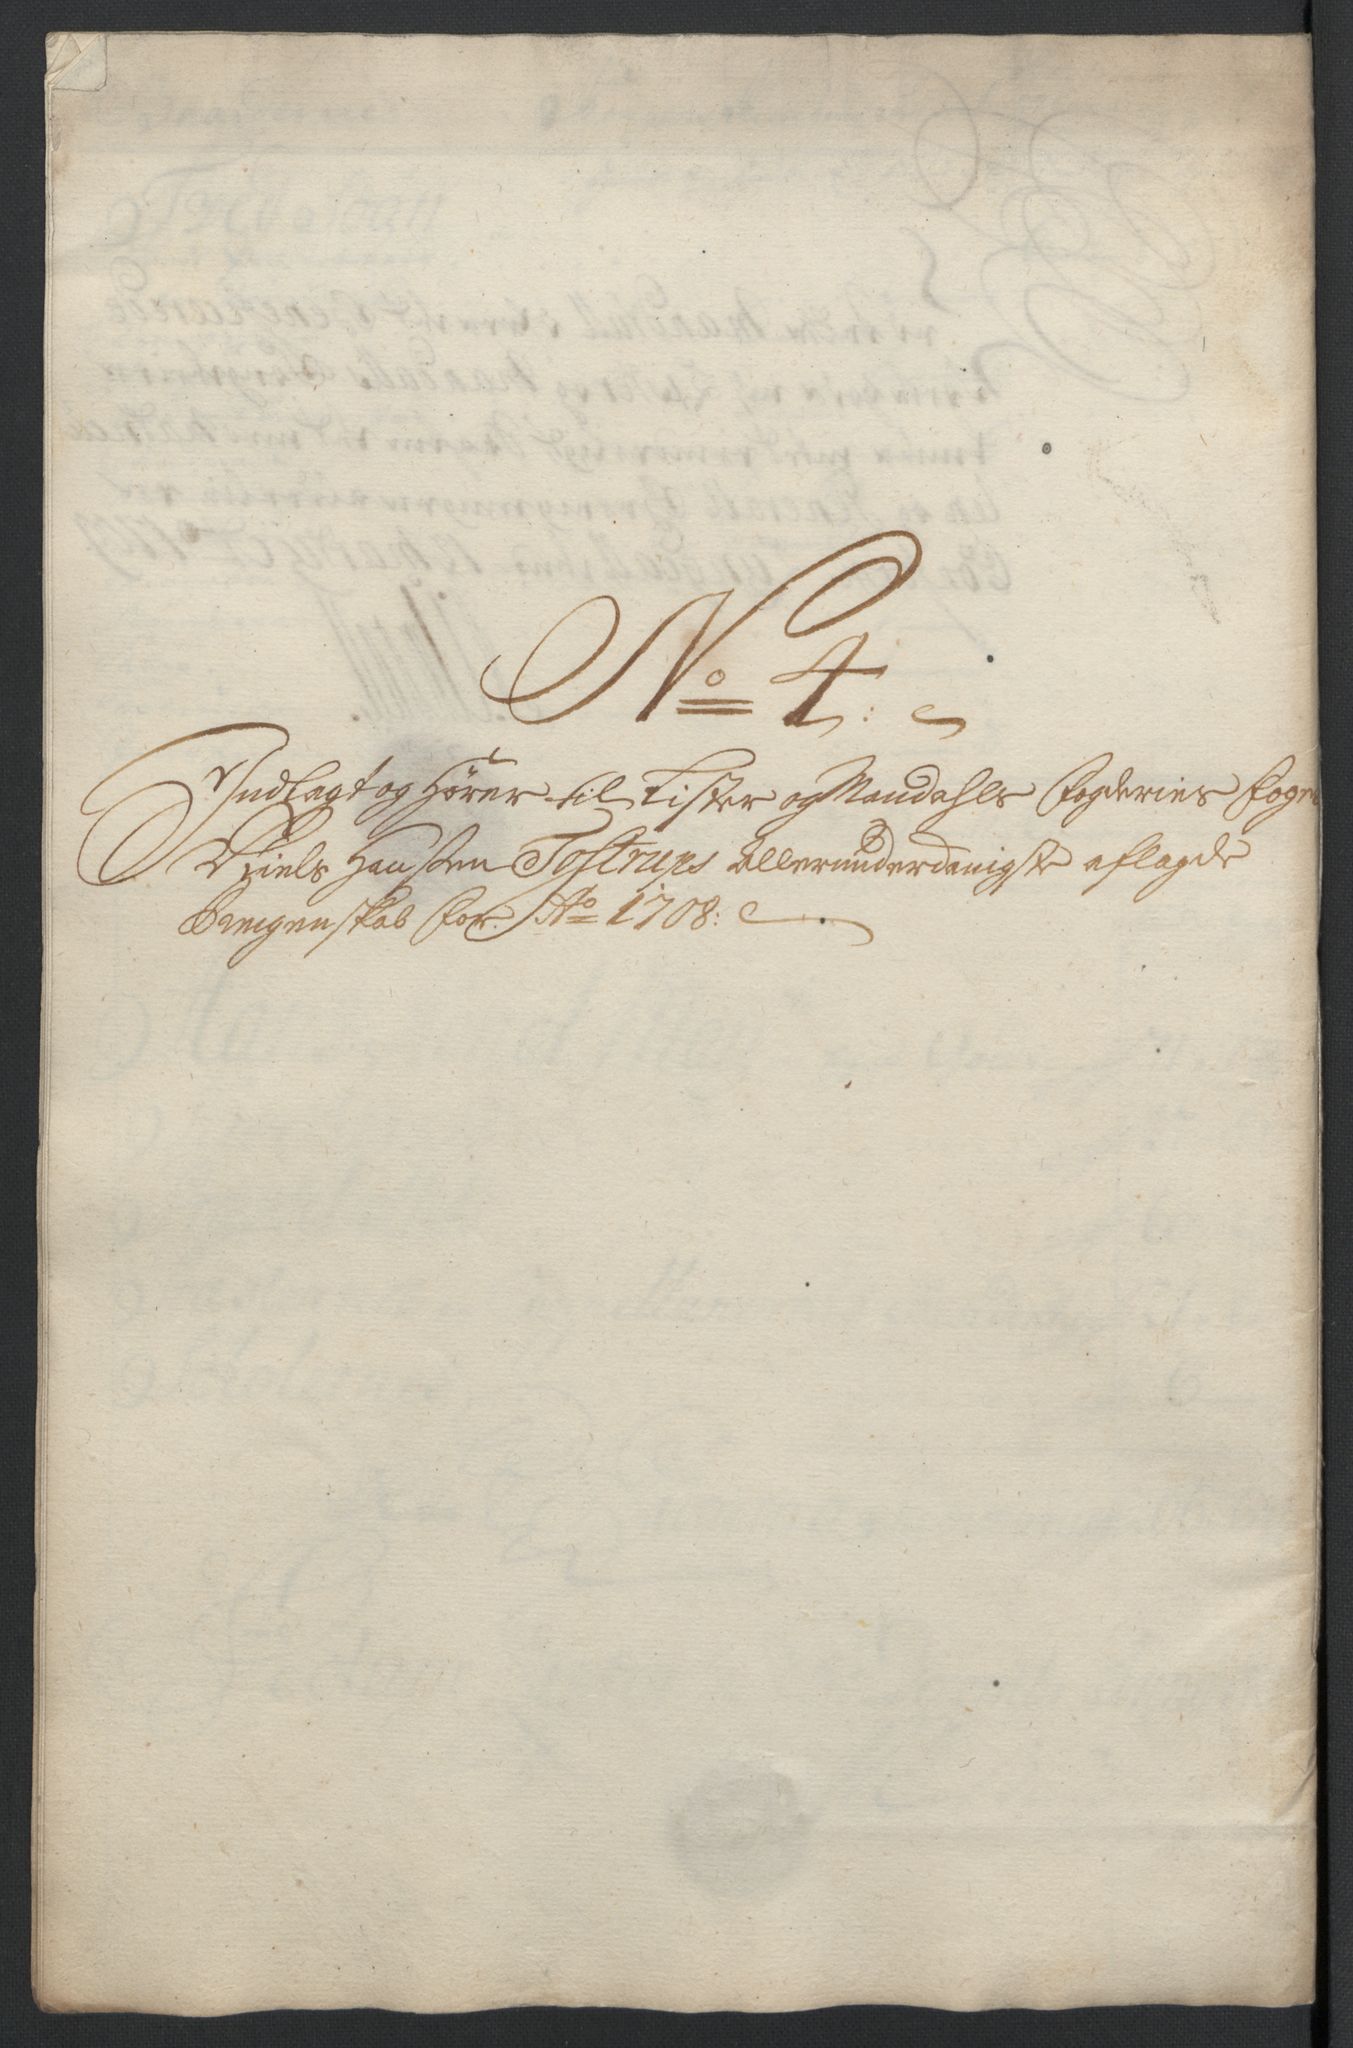 No 4:
Indlagt og hører til Lister og Mandahls fogderies fogd
Niels Hansen Tostrups allerunderdanigst aflagde
Reigenskab for Ao 1708: